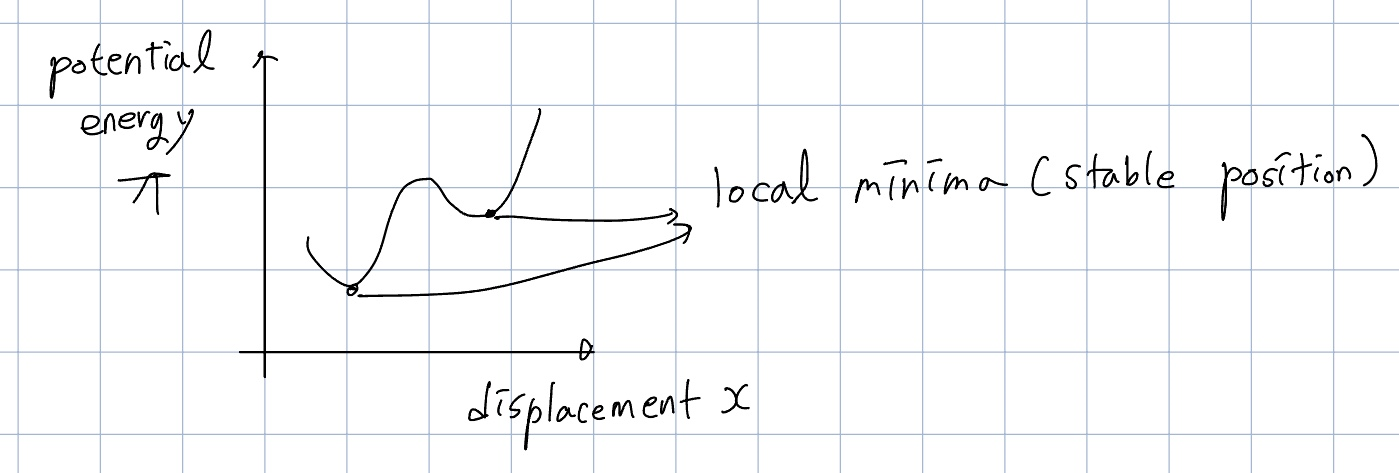 potential
energy
π
local minima (stable position)
displacement x